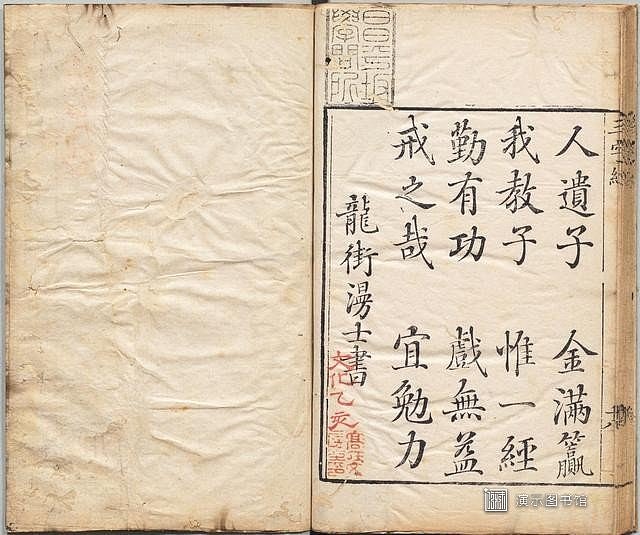 人遺子　金滿籯
我教子　惟一經
勤有功　戲無益
戒之哉　宜勉力
龍街湯士書
文化乙亥
三字經
演示图书馆